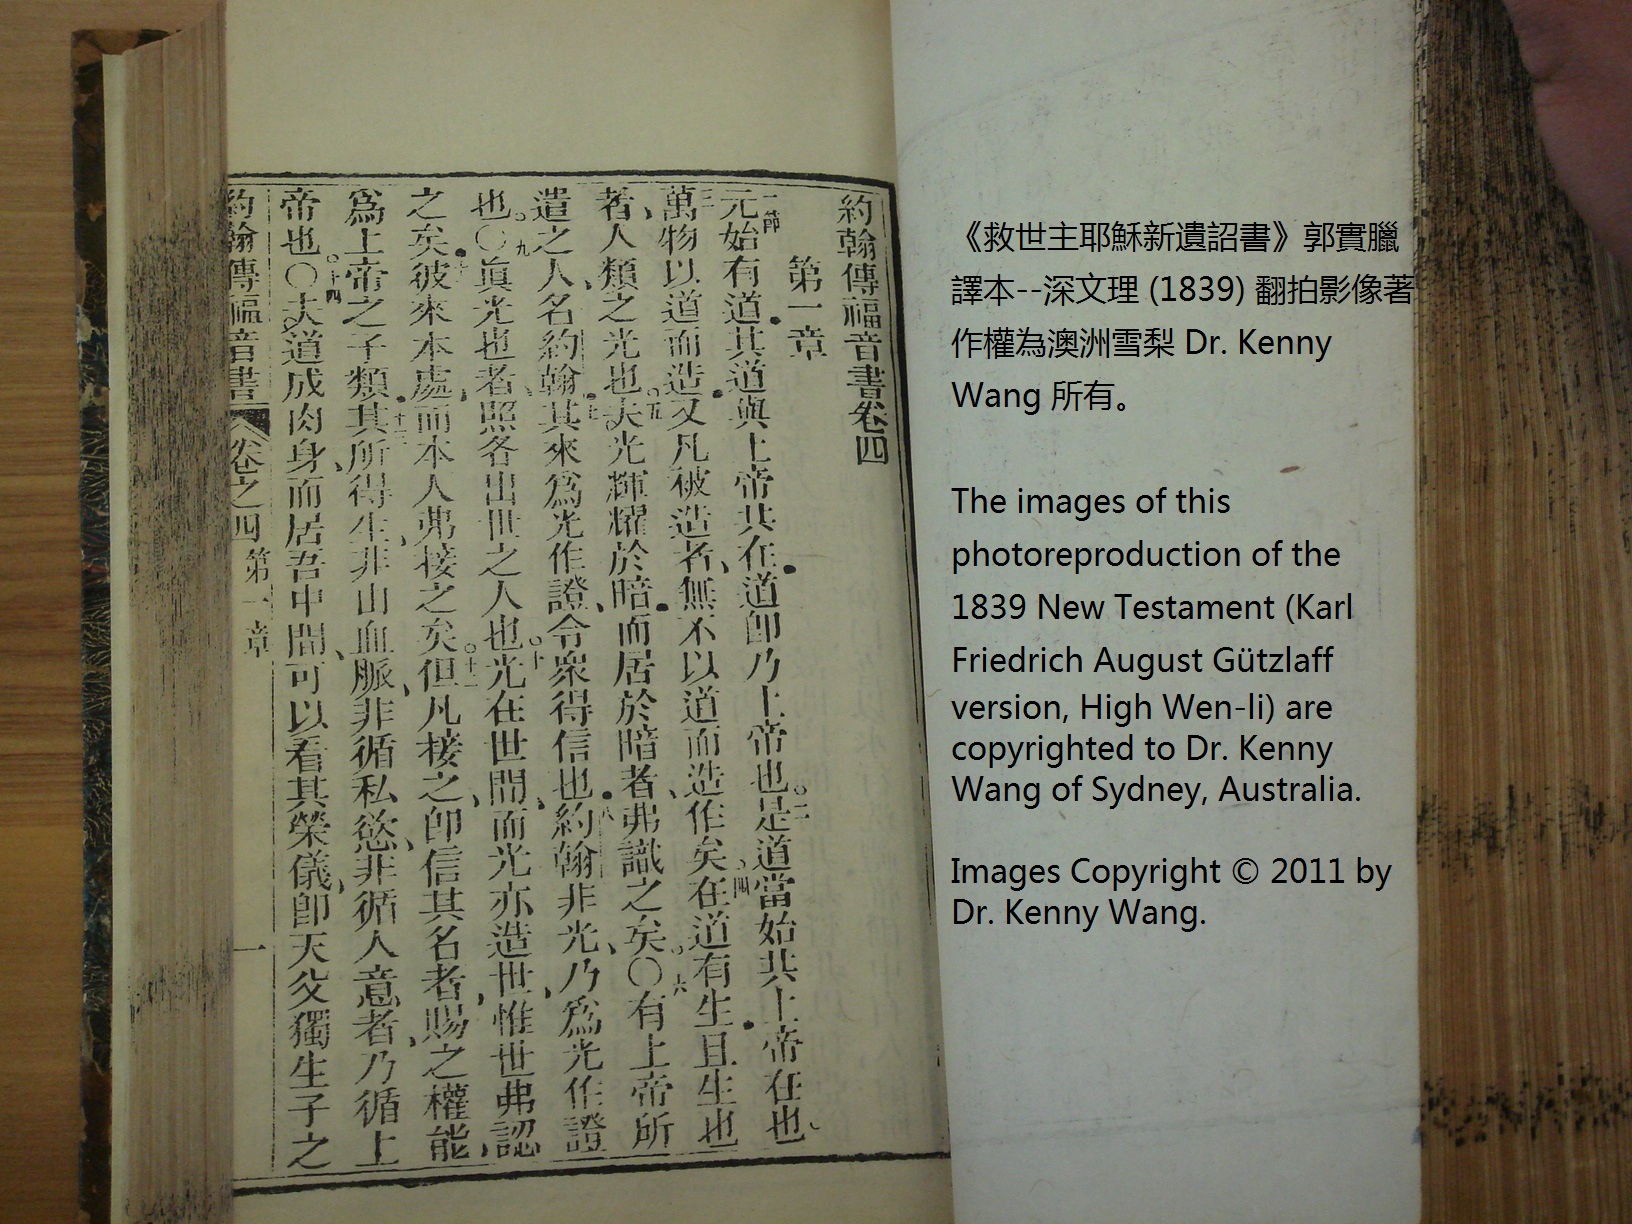 約翰傳福音書卷四
第一章
一節元始有道其道與上帝共在道卽乃上帝也二是道當始共上帝在也
三萬物以道而造又凡被造者無不以道而造作矣四在道有生且生也
者人類之光也五夫光輝耀於暗而居於暗者弗識之矣○六有上帝所
遣之人名約翰七其來爲光作證令衆得信也八約翰非光乃爲光作證
也○九眞光也者照各出世之人也十光在世間而光亦造世惟世弗認
之矣十一彼來本處而本人弗接之矣十二但凡接之卽信其名者賜之權能
爲上帝之子類十三其所得生非由血脈非循私慾非循人意者乃循上
帝也○十四夫道成肉身而居吾中間可以看其榮儀卽天父獨生子之
約翰傳福音書 卷之四 第一章 一
《救世主耶穌新遺詔書》郭實臘
譯本--深文理 (1839) 翻拍影像著
作權為澳洲雪梨 Dr. Kenny
Wang 所有。
The images of this
photoreproduction of the
1839 New Testament (Karl
Friedrich August Gützlaff
version, High Wen-li) are
copyrighted to Dr. Kenny
Wang of Sydney, Australia.
Images Copyright © 2011 by
Dr. Kenny Wang.